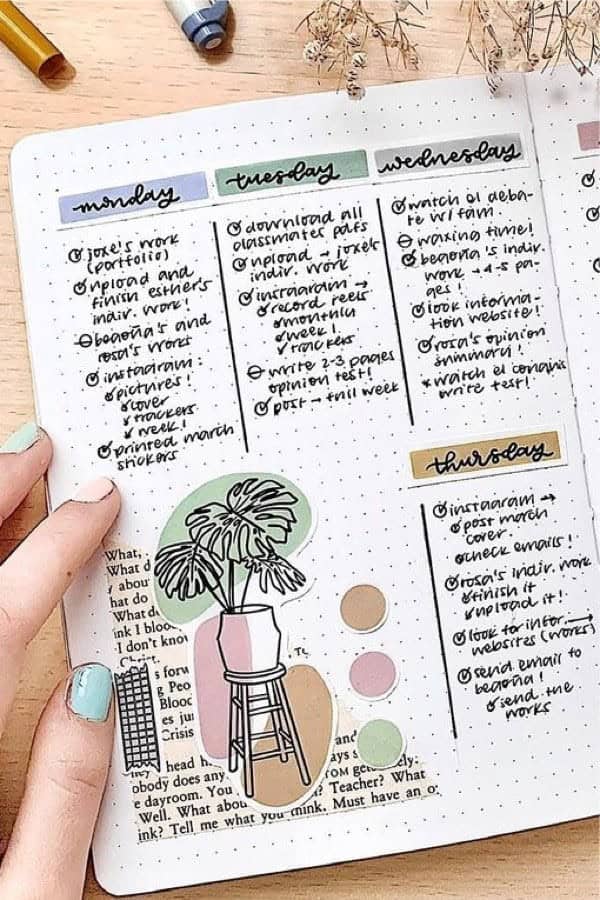 monday
joxe's work
(portfolio)
upload and
finish esther's
indiv. work!
begoña's and
rosa's works
instagram:
pictures!
cover
trackers
week!
printed march
stickers
tuesday
download all
classmates pdfs
upload → joxe's
indiv. work
instagram →
record reels
monthly
week!
trackers
write 2-3 pages
opinion test!
post → full week
wednesday
watch el deba-
te w/ fam
waxing time!
begoña's indiv.
work → 4-5 pa-
ges!
look informa-
tion website!
rosa's opinion
summary!
watch el
write test!
thursday
instagram →
post march
cover
check emails!
rosa's indiv. work
finish it
upload it!
look for infor. →
websites (works)
send email to
begoña!
send the
works
What,
What d
abou
hat do
What do
ink I bloo
I don't know
Christ.
s forw
g Peo
Blood
es ju
Crisis
Te
and
ays s
head h
obody does any
TOM get
e dayroom. You
? Teacher? What
Well. What abou
think. Must have an o
ink? Tell me what you